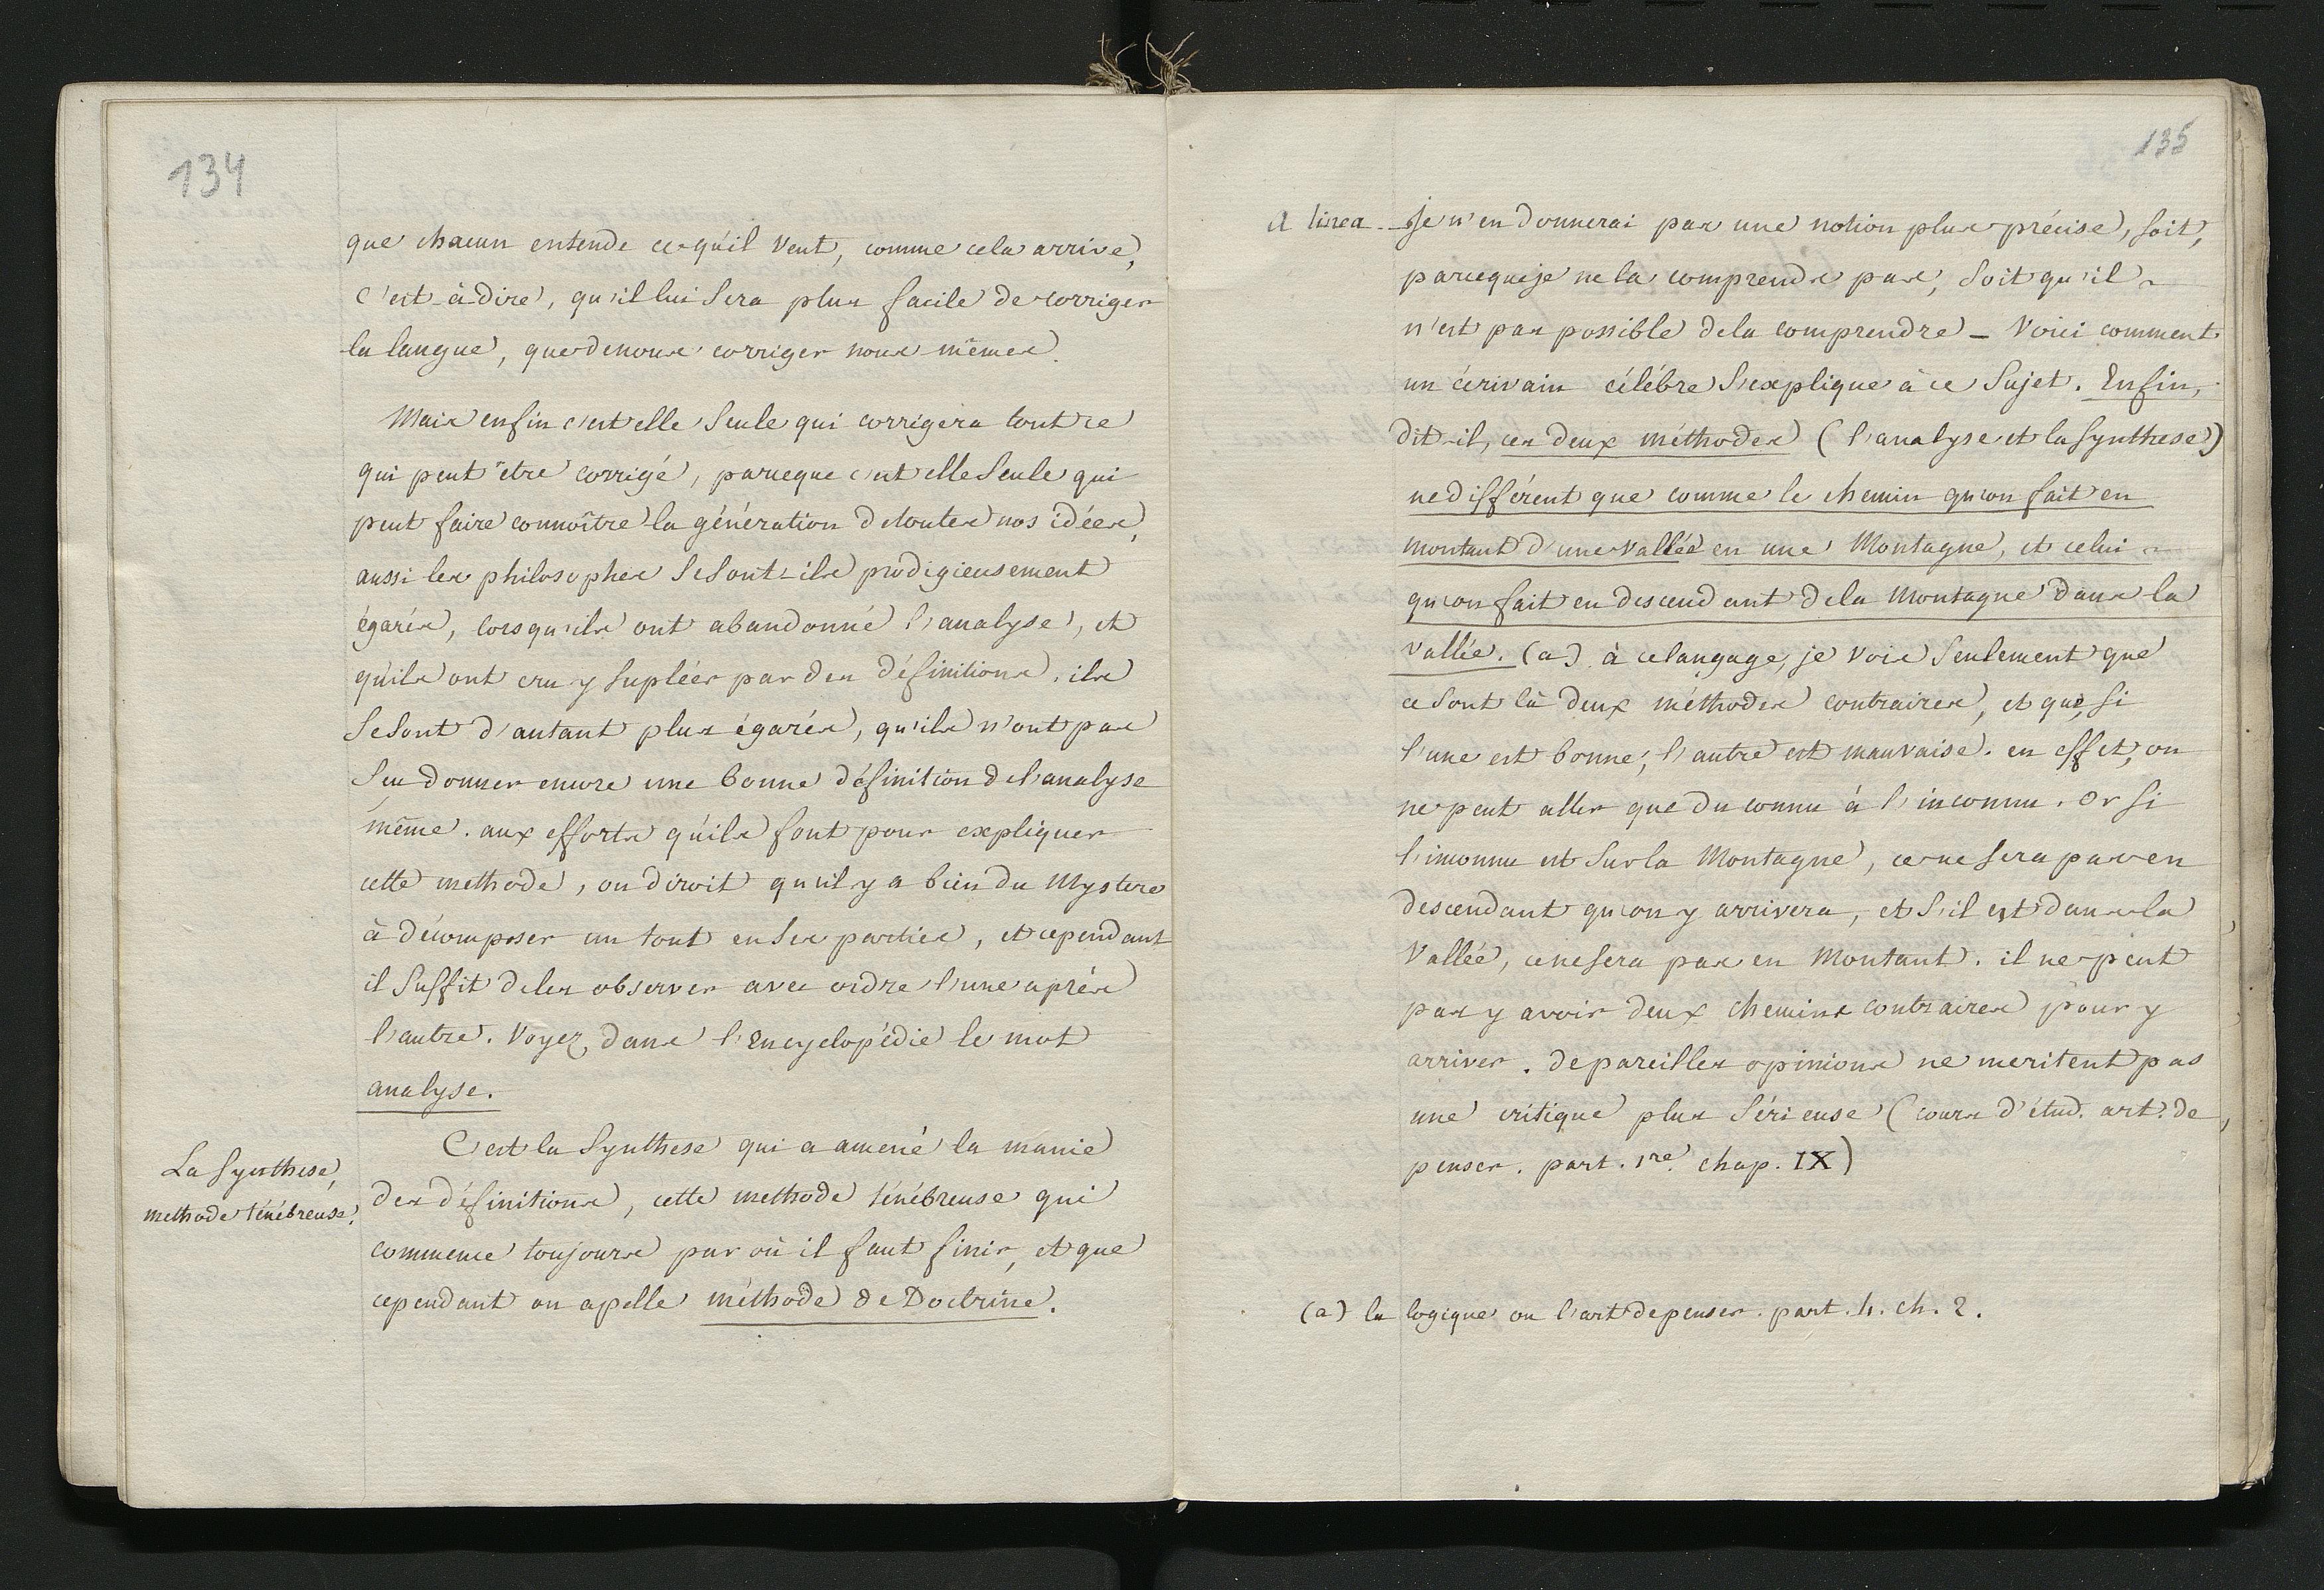 134
que chacun entende ce qu'il veut, comme cela arrive,
c'est-à-dire, qu'il lui sera plus facile de corriger
la langue, que de nous corriger nous mêmes.
Mais enfin c'est elle seule qui corrigera tout ce
qui peut être corrigé, parceque c'est elle seule qui
peut faire connoître la génération de toutes nos idées,
aussi les philosophes se sont-ils prodigieusement
égarés, lorsqu'ils ont abandonné l'analyse, et
qu'ils ont cru y supléer par des définitions. ils
se sont d'autant plus égarés, qu'ils n'ont pas
seu donner encore une bonne définition de l'analyse
même. aux efforts qu'ils font pour expliquer
cette methode, on diroit qu'il y a bien du Mystere
à décomposer un tout en ses parties, et cependant
il suffit de les observer avec ordre l'une après
l'autre. Voyez, dans l'Encyclopédie le mot
analyse.
C'est la Synthese qui a amené la manie
La Synthese,
methode ténébreuse.
des définitions, cette methode ténébreuse qui
commence toujours par où il faut finir, et que
cependant on apelle méthode de Doctrine.
135
A linea. Je n'en donnerai pas une notion plus précise, soit,
parceque je ne la comprends pas, soit qu'il
n'est pas possible de la comprendre - Voici comment
un écrivain célébre s'explique à ce sujet. Enfin,
dit-il, ces deux méthodes (l'analyse et la synthese)
ne différent que comme le chemin qu'on fait en
montant d'une vallée en une Montagne, et celui
qu'on fait en descendant de la Montagne dans la
vallée. (a) à ce langage, je vois seulement que
ce sont là deux méthodes contraires, et que, si
l'une est bonne, l'autre est mauvaise. en effet, on
ne peut aller que du connu à l'inconnu. Or si
l'inconnu est sur la Montagne, ce ne sera pas en
descendant qu'on y arrivera, et s'il est dans la
Vallée, ce ne sera pas en Montant. il ne peut
pas y avoir deux chemins contraires pour y
arriver. de pareilles opinions ne meritent pas
une critique plus sérieuse (cours d'étud. art. de
penser. part. 1re. chap. IX)
(a) la logique ou l'art de penser. part. 4. ch. 2.